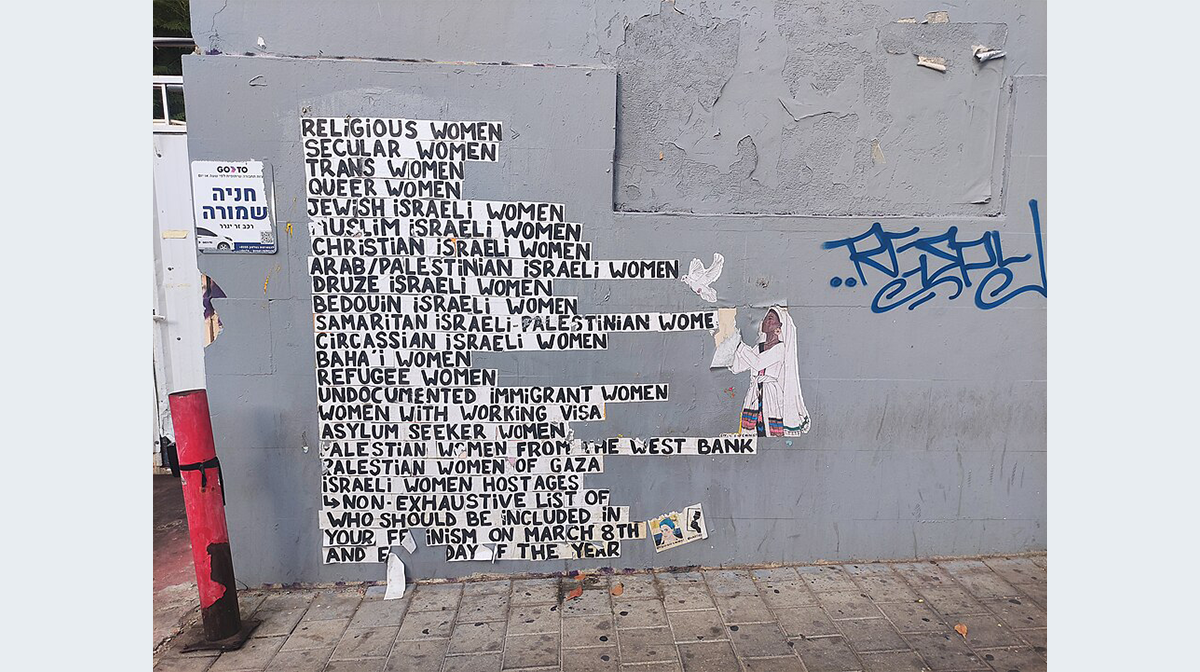 RELIGIOUS WOMEN
SECULAR WOMEN
TRANS WOMEN
QUEER WOMEN
JEWISH ISRAELI WOMEN
MUSLIM ISRAELI WOMEN
CHRISTIAN ISRAELI WOMEN
ARAB/PALESTINIAN ISRAELI WOMEN
DRUZE ISRAELI WOMEN
BEDOUIN ISRAELI WOMEN
SAMARITAN ISRAELI-PALESTINIAN WOME
CIRCASSIAN ISRAELI WOMEN
BAHA'I WOMEN
REFUGEE WOMEN
UNDOCUMENTED IMMIGRANT WOMEN
WOMEN WITH WORKING VISA
ASYLUM SEEKER WOMEN
PALESTIAN WOMEN FROM THE WEST BANK
PALESTIAN WOMEN OF GAZA
ISRAELI WOMEN HOSTAGES
↳NON-EXHAUSTIVE LIST OF
WHO SHOULD BE INCLUDED IN
YOUR FE INISM ON MARCH 8TH
AND E DAY F THE YEAR
GOTO
חניה
שמורה
רכב זר ייגרר